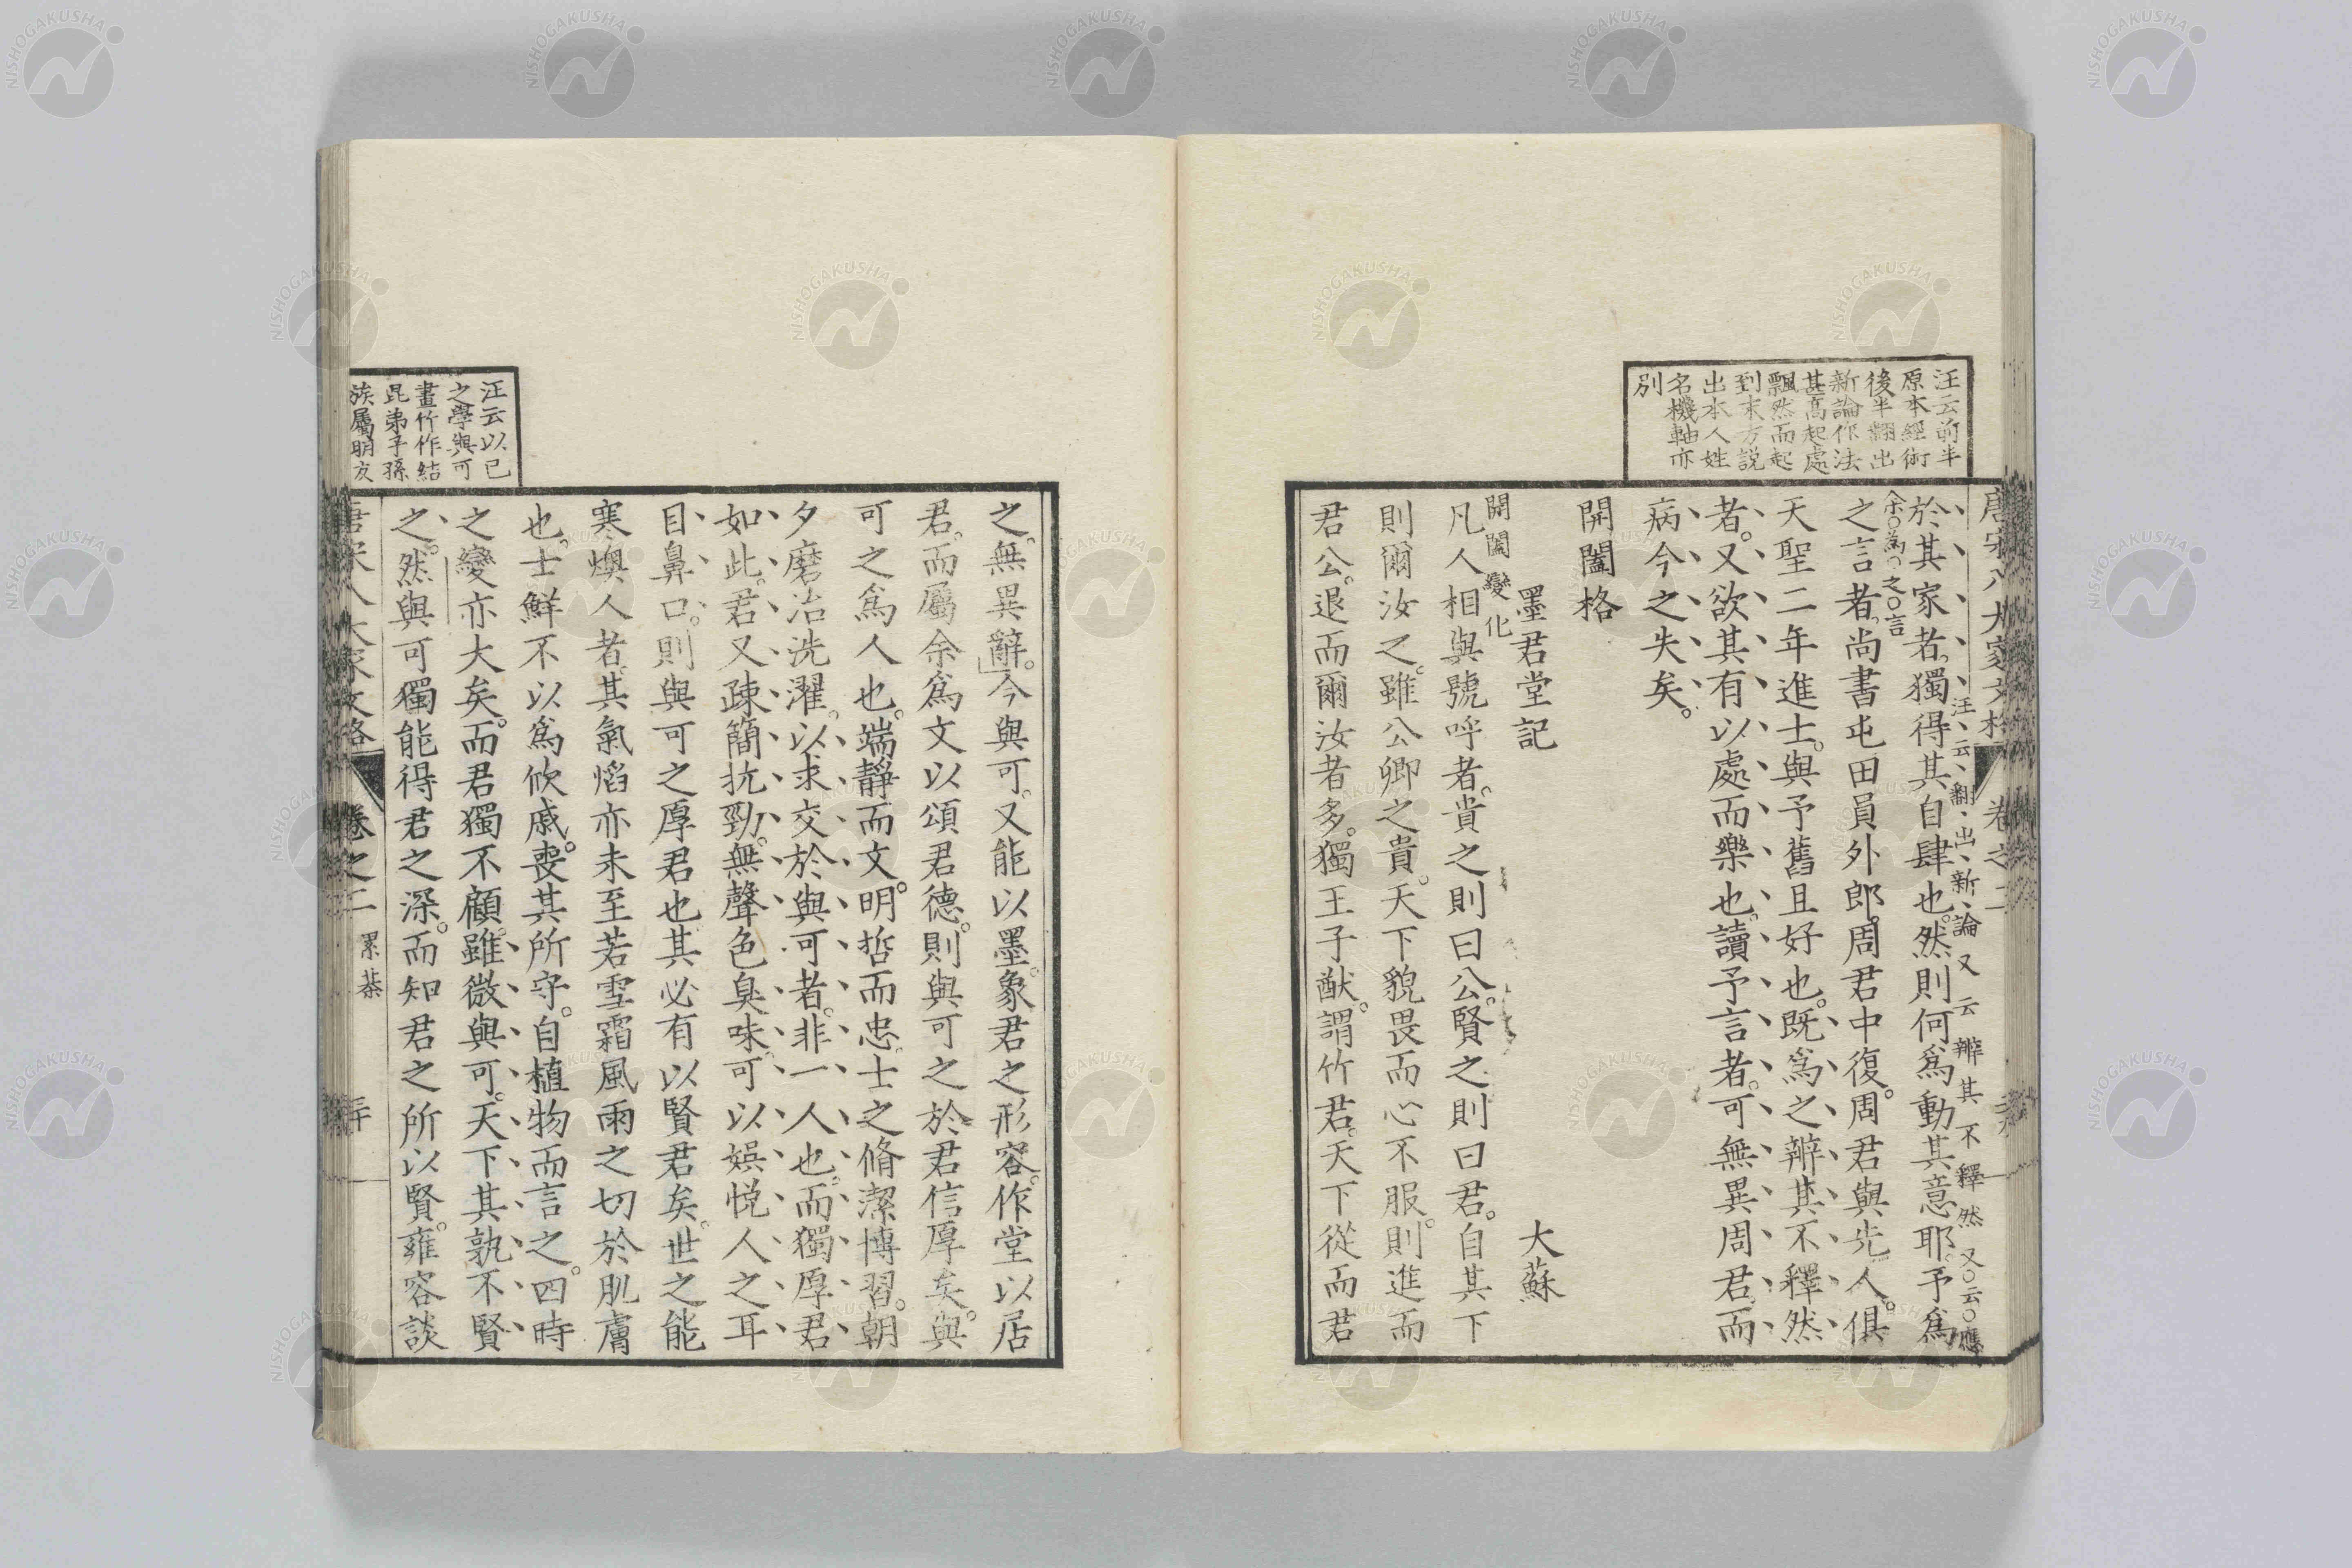 汪云前半
原本經術
後半翻出
新論作法
甚高起處
飄然而起
到末方説
出本人姓
名機軸亦
別
唐宋八大家文格
卷之二
汪云翻出新論又云辨其不釋然又云應
於其家者獨得其自肆也然則何爲動其意耶予爲
余爲之言
之言者尚書屯田員外郎周君中復周君與先人俱
天聖二年進士與予舊且好也既爲之辨其不釋然
者又欲其有以處而樂也讀予言者可無異周君而
病今之失矣
開闔格
墨君堂記 大蘇
開闔變化
凡人相與號呼者貴之則曰公賢之則曰君自其下
則爾汝之雖公卿之貴天下貌畏而心不服則進而
君公退而爾汝者多獨王子猷謂竹君天下從而君
之無異辭今與可又能以墨象君之形容作堂以居
君而屬余爲文以頌君德則與可之於君信厚矣與
可之爲人也端靜而文明哲而忠士之脩潔博習朝
夕磨冶洗濯以求交於與可者非一人也而獨厚君
如此君又疎簡抗勁無聲色臭味可以娯悦人之耳
目鼻口則與可之厚君也其必有以賢君矣世之能
寒燠人者其氣焰亦未至若雪霜風雨之切於肌膚
也士鮮不以爲欣戚喪其所守自植物而言之四時
之變亦大矣而君獨不顧雖微與可天下其孰不賢
之然與可獨能得君之深而知君之所以賢雍容談
汪云以已
之學與可
畫竹作結
昆弟子孫
族屬朋友
唐宋八大家文格
卷之二
三十